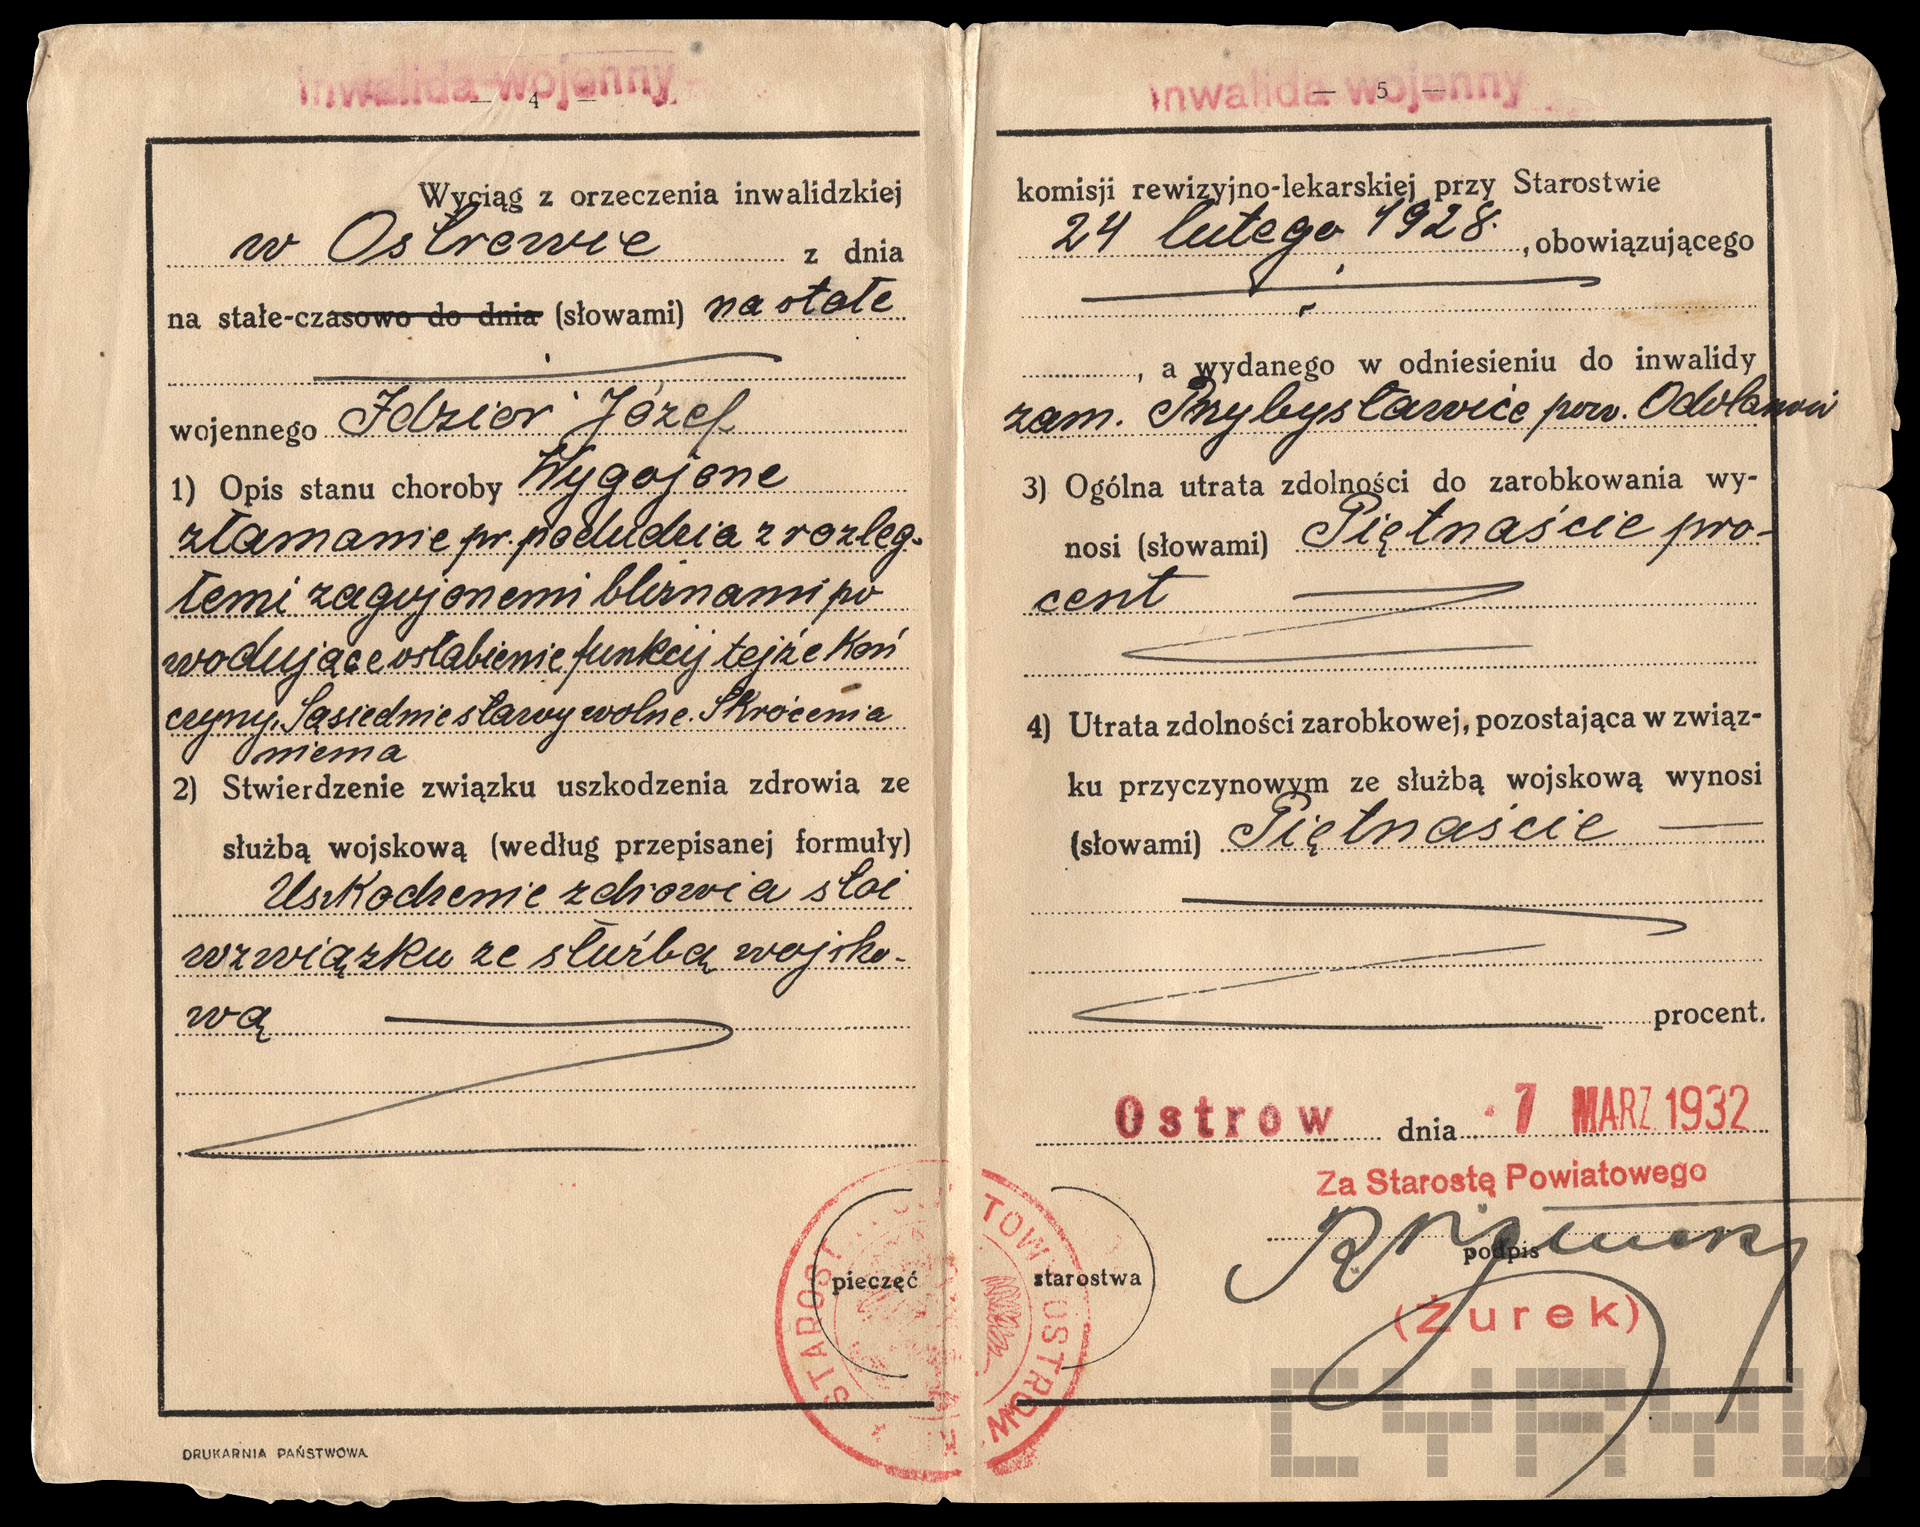 Inwalida wojenny
— 4 —
Wyciąg z orzeczenia inwalidzkiej
w Ostrowie z dnia
na stałe-czasowo do dnia (słowami) na stałe
wojennego Idzior Józef
1) Opis stanu choroby Wygojone
złamanie pr. podudzia z rozleg-
łemi zagojonemi bliznami po
wodujące osłabienie funkcij tejże koń
czyny. Sąsiednie stawy wolne. Skrócenia
niema
2) Stwierdzenie związku uszkodzenia zdrowia ze
służbą wojskową (według przepisanej formuły)
Uszkodzenie zdrowia stoi
w związku ze służbą wojsko-
wą
pieczęć
DRUKARNIA PAŃSTWOWA
Inwalida wojenny
— 5 —
komisji rewizyjno-lekarskiej przy Starostwie
24 lutego 1928. , obowiązującego
, a wydanego w odniesieniu do inwalidy
zam. Przybysławice pow. Odolanów
3) Ogólna utrata zdolności do zarobkowania wy-
nosi (słowami) Piętnaście pro-
cent
4) Utrata zdolności zarobkowej, pozostająca w związ-
ku przyczynowym ze służbą wojskową wynosi
(słowami) Piętnaście —
procent.
Ostrow dnia 7 MARZ 1932
Za Starostę Powiatowego
podpis
starostwa
(Żurek)
CYRYL